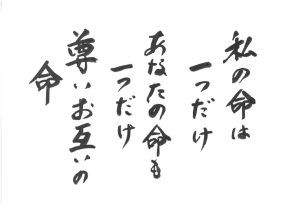 私の命は
一つだけ
あなたの命も
一つだけ
尊いお互いの
命